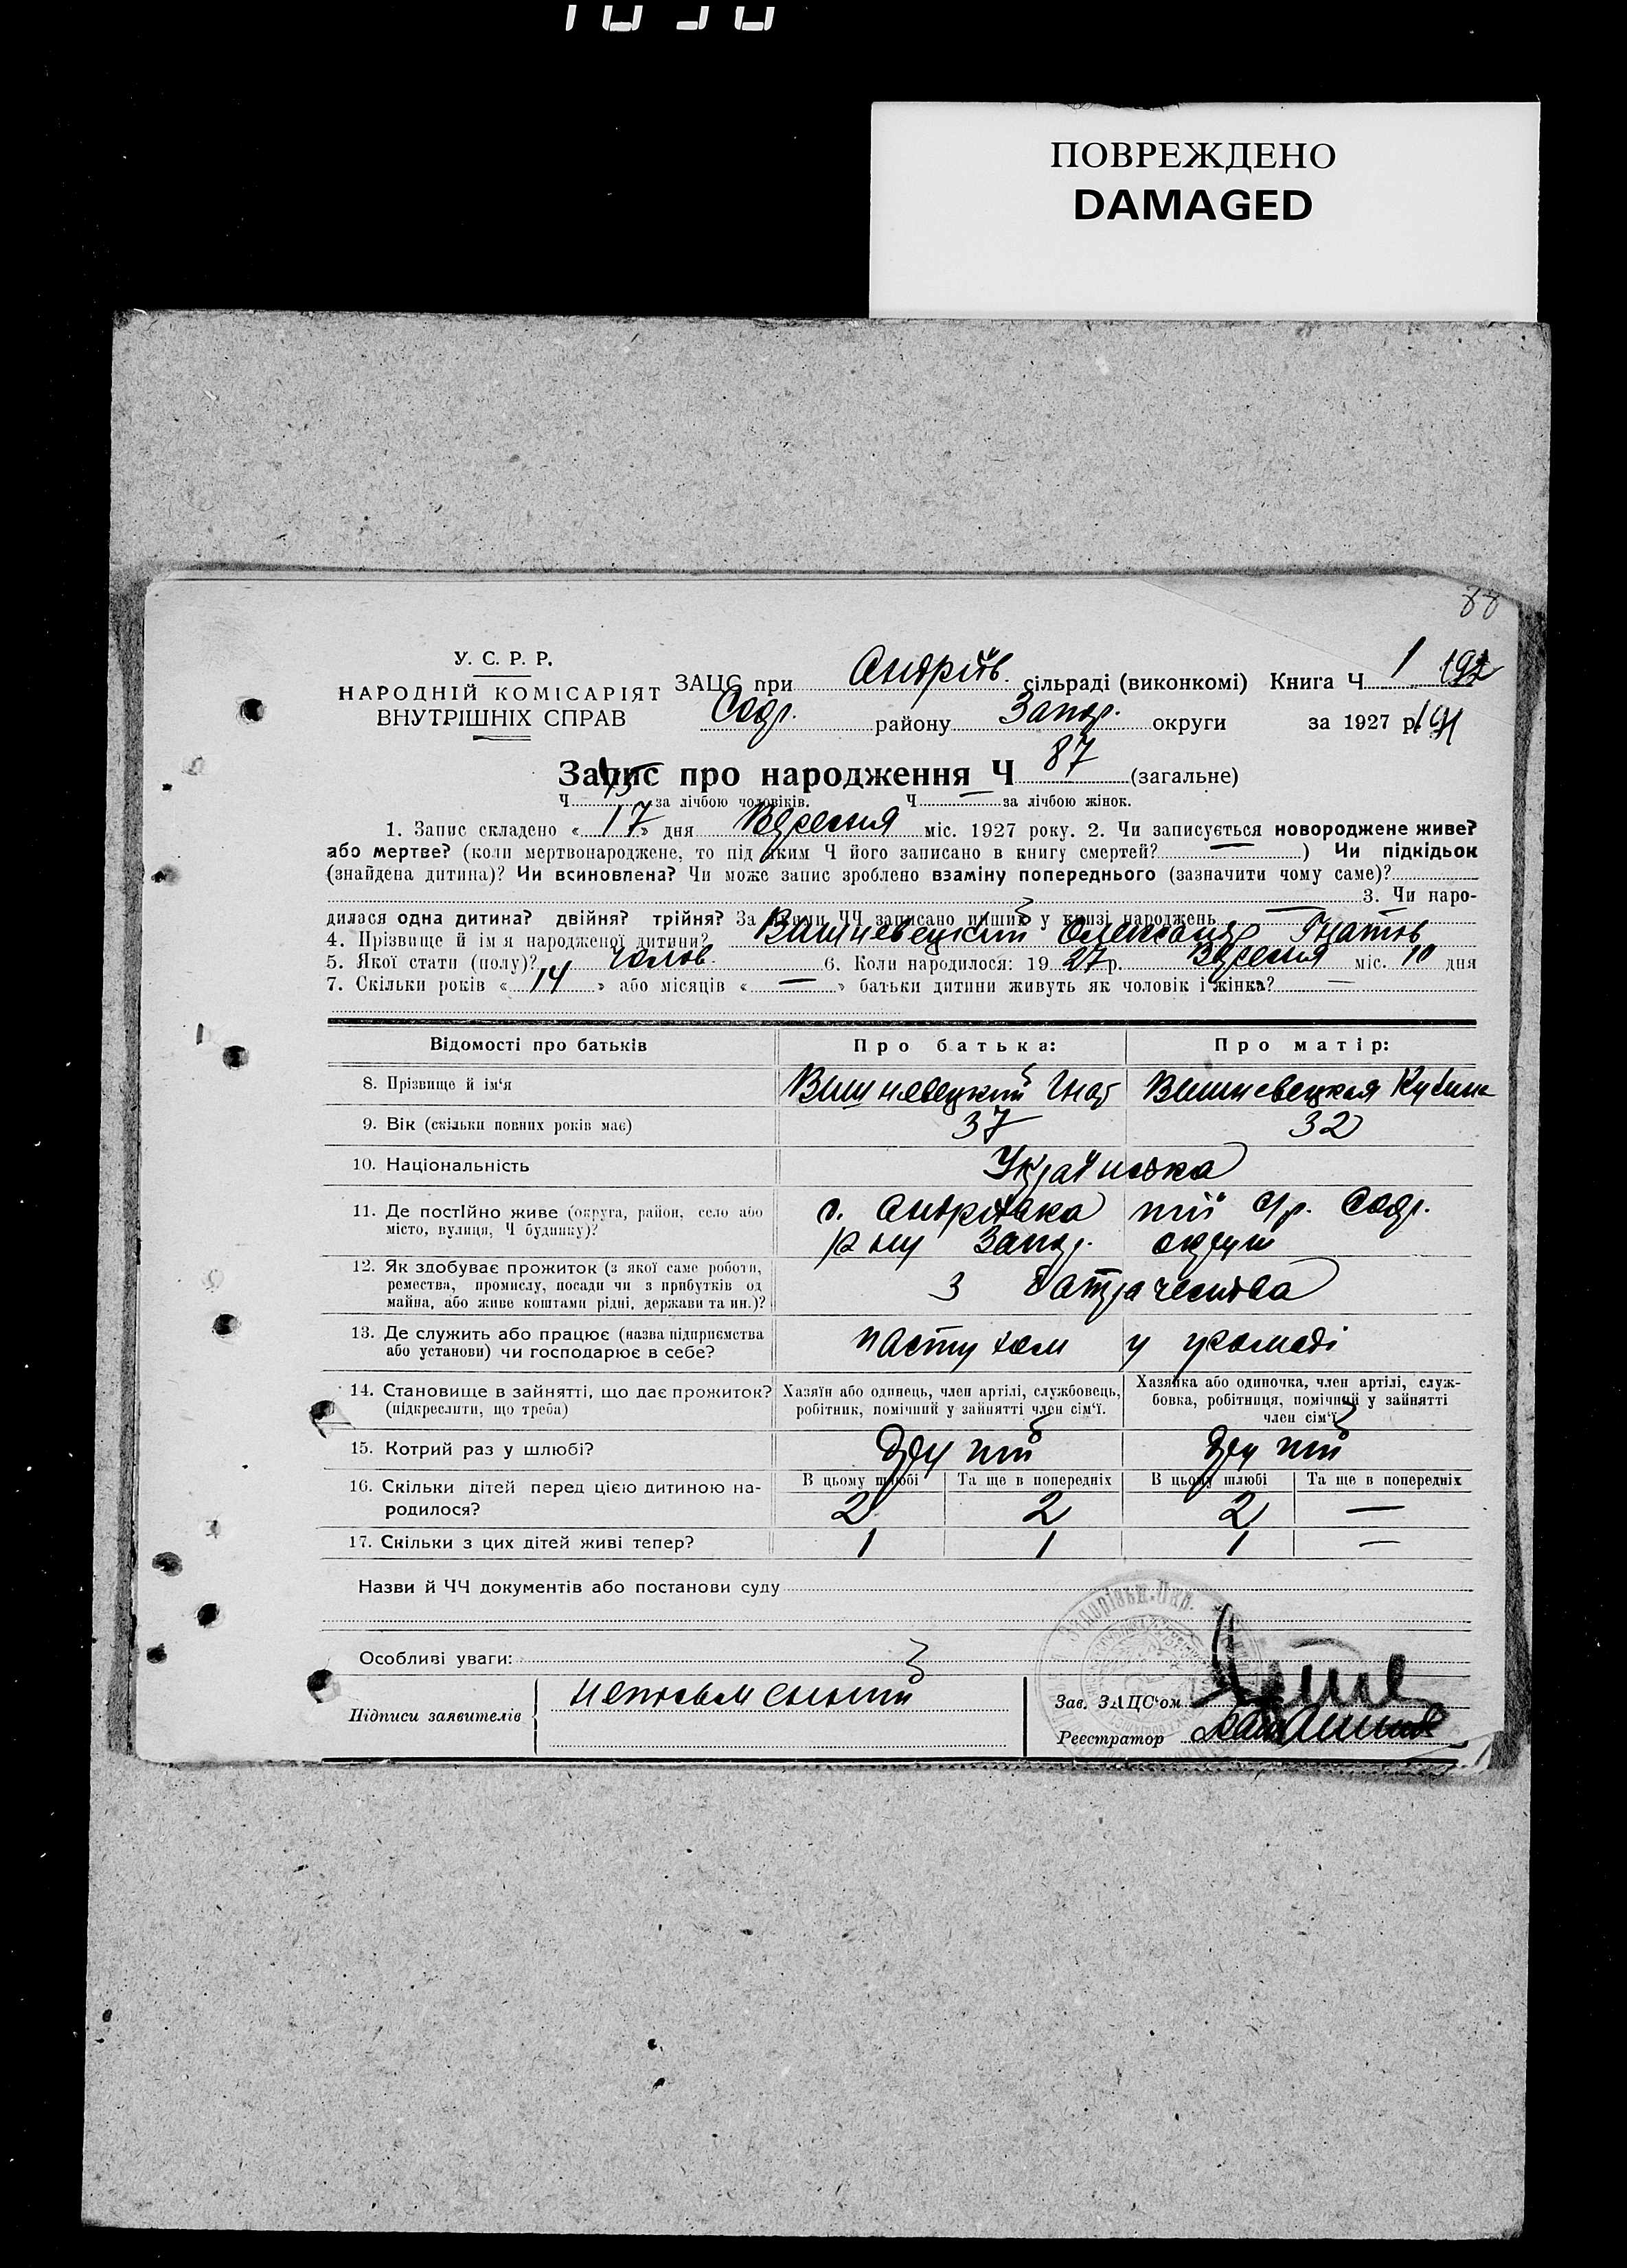 ПОВРЕЖДЕНО
DAMAGED
88
У. С. Р. Р.
НАРОДНІЙ КОМІСАРІЯТ
ВНУТРІШНІХ СПРАВ
ЗАЦС при Андріїв. сільраді (виконкомі) Книга Ч 1 192
Софр. району Запор. округи за 1927 р. 191
Запис про народження Ч 87 (загальне)
Ч за лічбою чоловіків. Ч — за лічбою жінок.
1. Запис складено « 17 » дня Вересня міс. 1927 року. 2. Чи записується новороджене живе?
або мертве? (коли мертвонароджене, то під яким Ч його записано в книгу смертей? — ) Чи підкідьок
(знайдена дитина)? Чи всиновлена? Чи може запис зроблено взаміну попереднього (зазначити чому саме)?
3. Чи наро-
дилася одна дитина? двійня? трійня? За якими ЧЧ записано инших у книзі народжень —
4. Прізвище й ім'я народженої дитини? Вишневецький Олександр Гнатов
5. Якої стати (полу)? чолов. 6. Коли народилося: 19 27 р. Вересня міс. 10 дня
7. Скільки років « 14 » або місяців « — » батьки дитини живуть як чоловік і жінка? —
Відомості про батьків Про батька: Про матір:
8. Прізвище й ім'я Вишневецкий Гнат Вишневецкая
9. Вік (скільки повних років має) 37 32
10. Національність Українська
11. Де постійно живе (округа, район, село або
місто, вулиця, Ч будинку)?
с. Андріївка тії с/р. Софр.
р ну Запор. округи
12. Як здобуває прожиток (з якої саме роботи,
ремества, промислу, посади чи з прибутків од
майна, або живе коштами рідні, держави та ин.)?
З батрачества
13. Де служить або працює (назва підприємства
або установи) чи господарює в себе?
пастухом у громаді
14. Становище в зайнятті, що дає прожиток?
(підкреслити, що треба)
Хазяїн або одинець, член артілі, службовець,
робітник, помічний у зайнятті член сім'ї.
Хазяйка або одиночка, член артілі, служ-
бовка, робітниця, помічний у зайнятті
член сім'ї
15. Котрий раз у шлюбі? другий другий
16. Скільки дітей перед цією дитиною на-
родилося?
В цьому шлюбі Та ще в попередніх В цьому шлюбі Та ще в попередніх
2 2 2 —
17. Скільки з цих дітей живі тепер? 1 1 1 —
Назви й ЧЧ документів або постанови суду
Особливі уваги:
Підписи заявителів
неписьменний
Зав. ЗАЦС'ом
Реєстратор